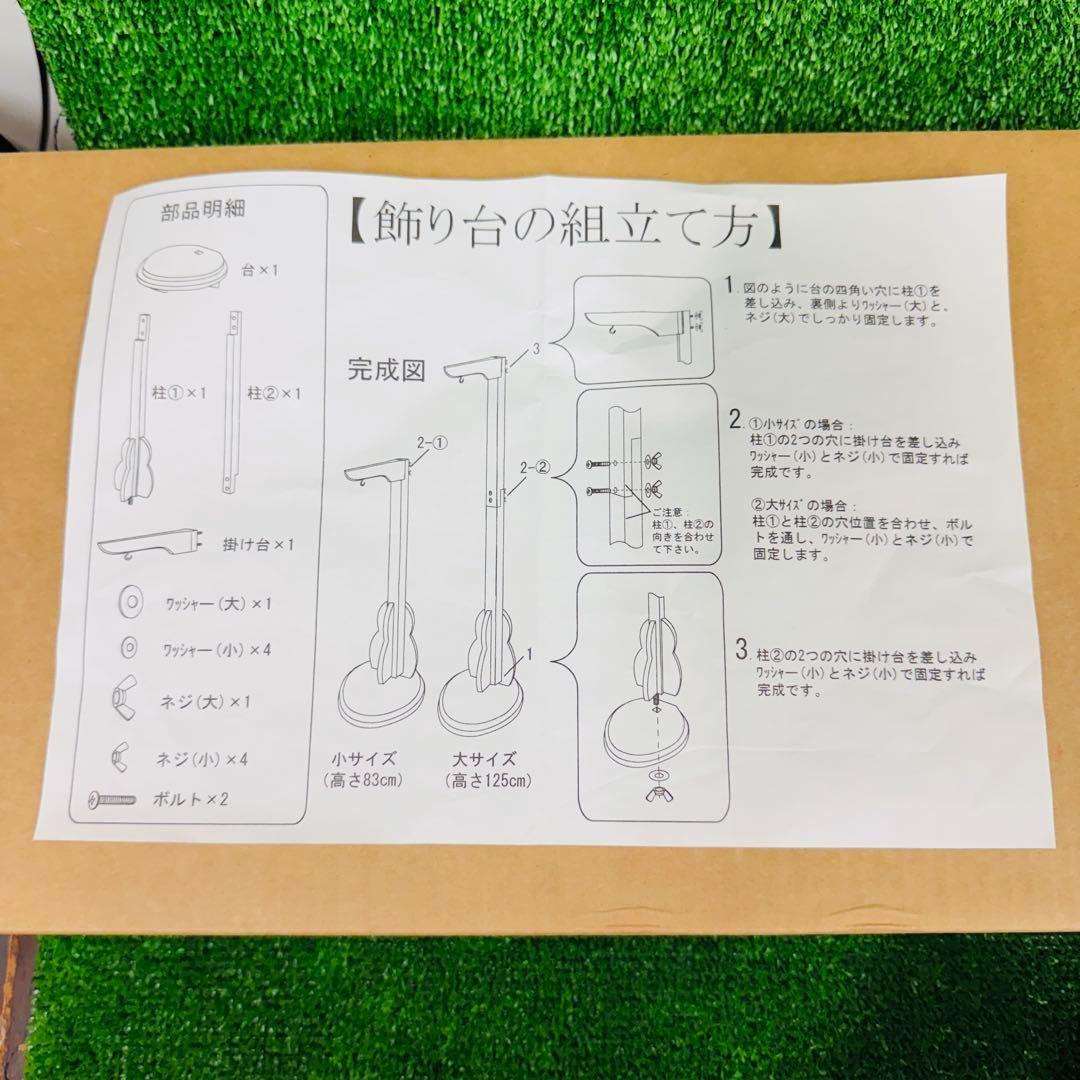 部品明細
台×1
柱①×1
柱②×1
掛け台×1
ﾜｯｼｬｰ(大)×1
ﾜｯｼｬｰ(小)×4
ネジ(大)×1
ネジ(小)×4
ボルト×2
【飾り台の組立て方】
完成図
3
2-①
2-②
1
小サイズ
(高さ83cm)
大サイズ
(高さ125cm)
ご注意:
柱①、柱②の
向きを合わせ
て下さい。
1. 図のように台の四角い穴に柱①を
差し込み、裏側よりﾜｯｼｬｰ(大)と、
ネジ(大)でしっかり固定します。
2. ①小ｻｲｽﾞの場合:
柱①の2つの穴に掛け台を差し込み
ﾜｯｼｬｰ(小)とネジ(小)で固定すれば
完成です。
②大ｻｲｽﾞの場合:
柱①と柱②の穴位置を合わせ、ボル
トを通し、ﾜｯｼｬｰ(小)とネジ(小)で
固定します。
3. 柱②の2つの穴に掛け台を差し込み
ﾜｯｼｬｰ(小)とネジ(小)で固定すれば
完成です。